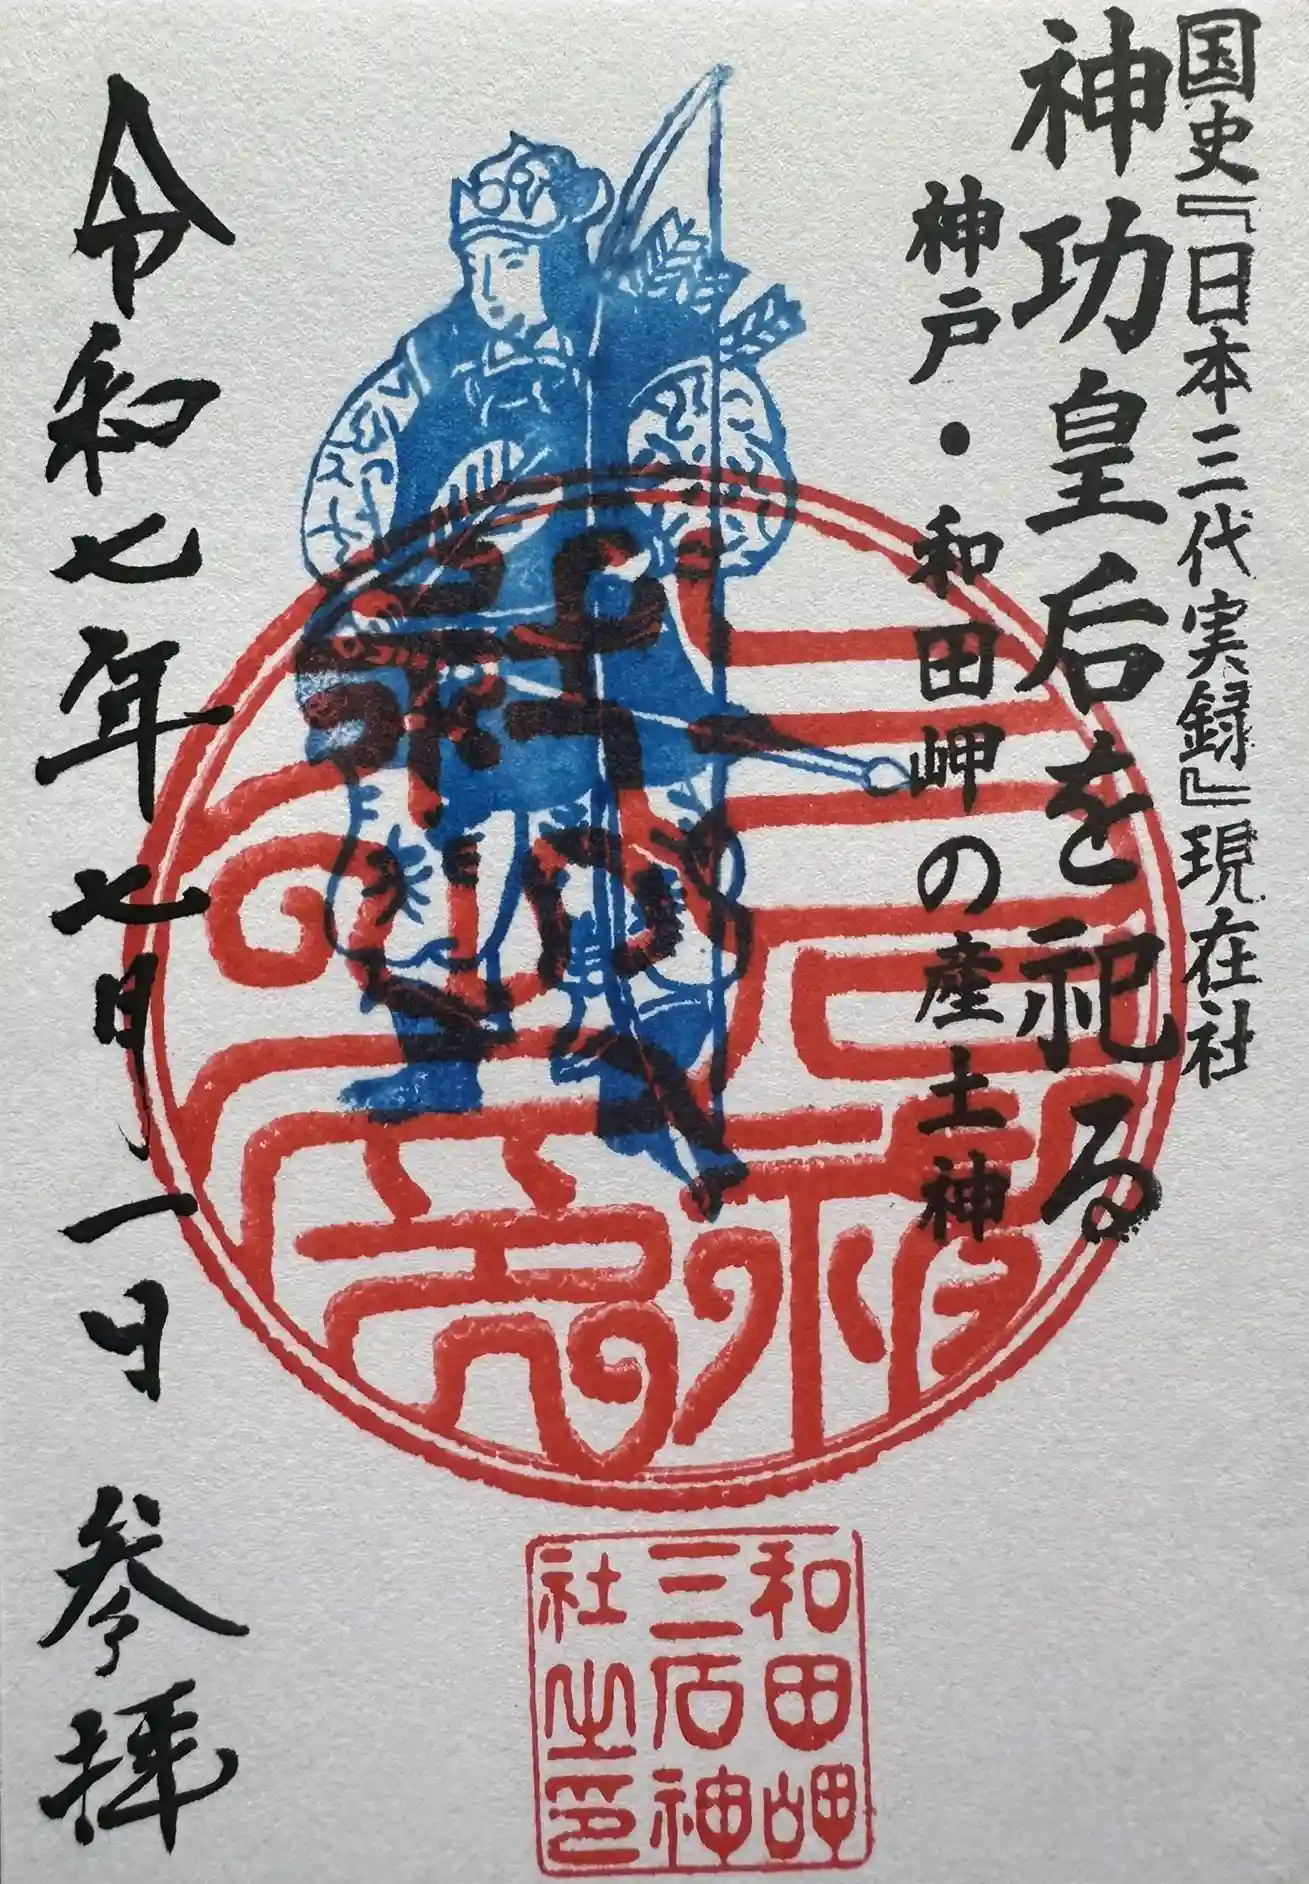 国史『日本三代実録』現在社
神功皇后を祀る
神戸・和田岬の産土神
令和七年七月一日 参拝
和田岬
三石神
社之印